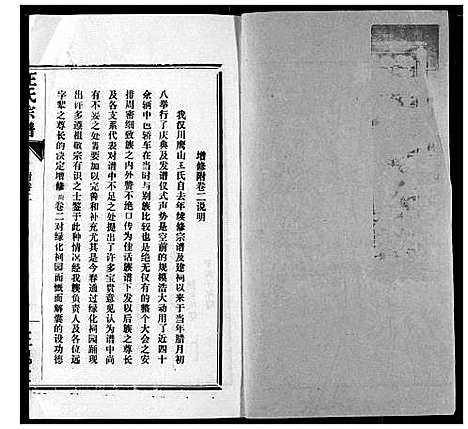 增修附卷二说明
我仅川鹰山王氏自去年续修宗谱及建祠以来于当年腊月初
八举行了庆典及发谱仪式声势是空前的规模浩大动用了近四十
余辆中巴轿车在当时与别族比较也是绝无仅有的整个大会之安
排周密细致族之内外赞不绝口传为佳话族谱下发以后族之尊长
及各支系代表对谱中不足之处提出了许多宝贵意见认为谱中尚
有不妥之处需要加以完善和补充尤其是今春通过绿化祠园踊现
出许多遵祖敬宗有识之士鉴于此种情况经我族负责人及各位远
字辈之尊长的决定增修附卷二对绿化祠园而慨而解囊的设功德
王氏宗谱